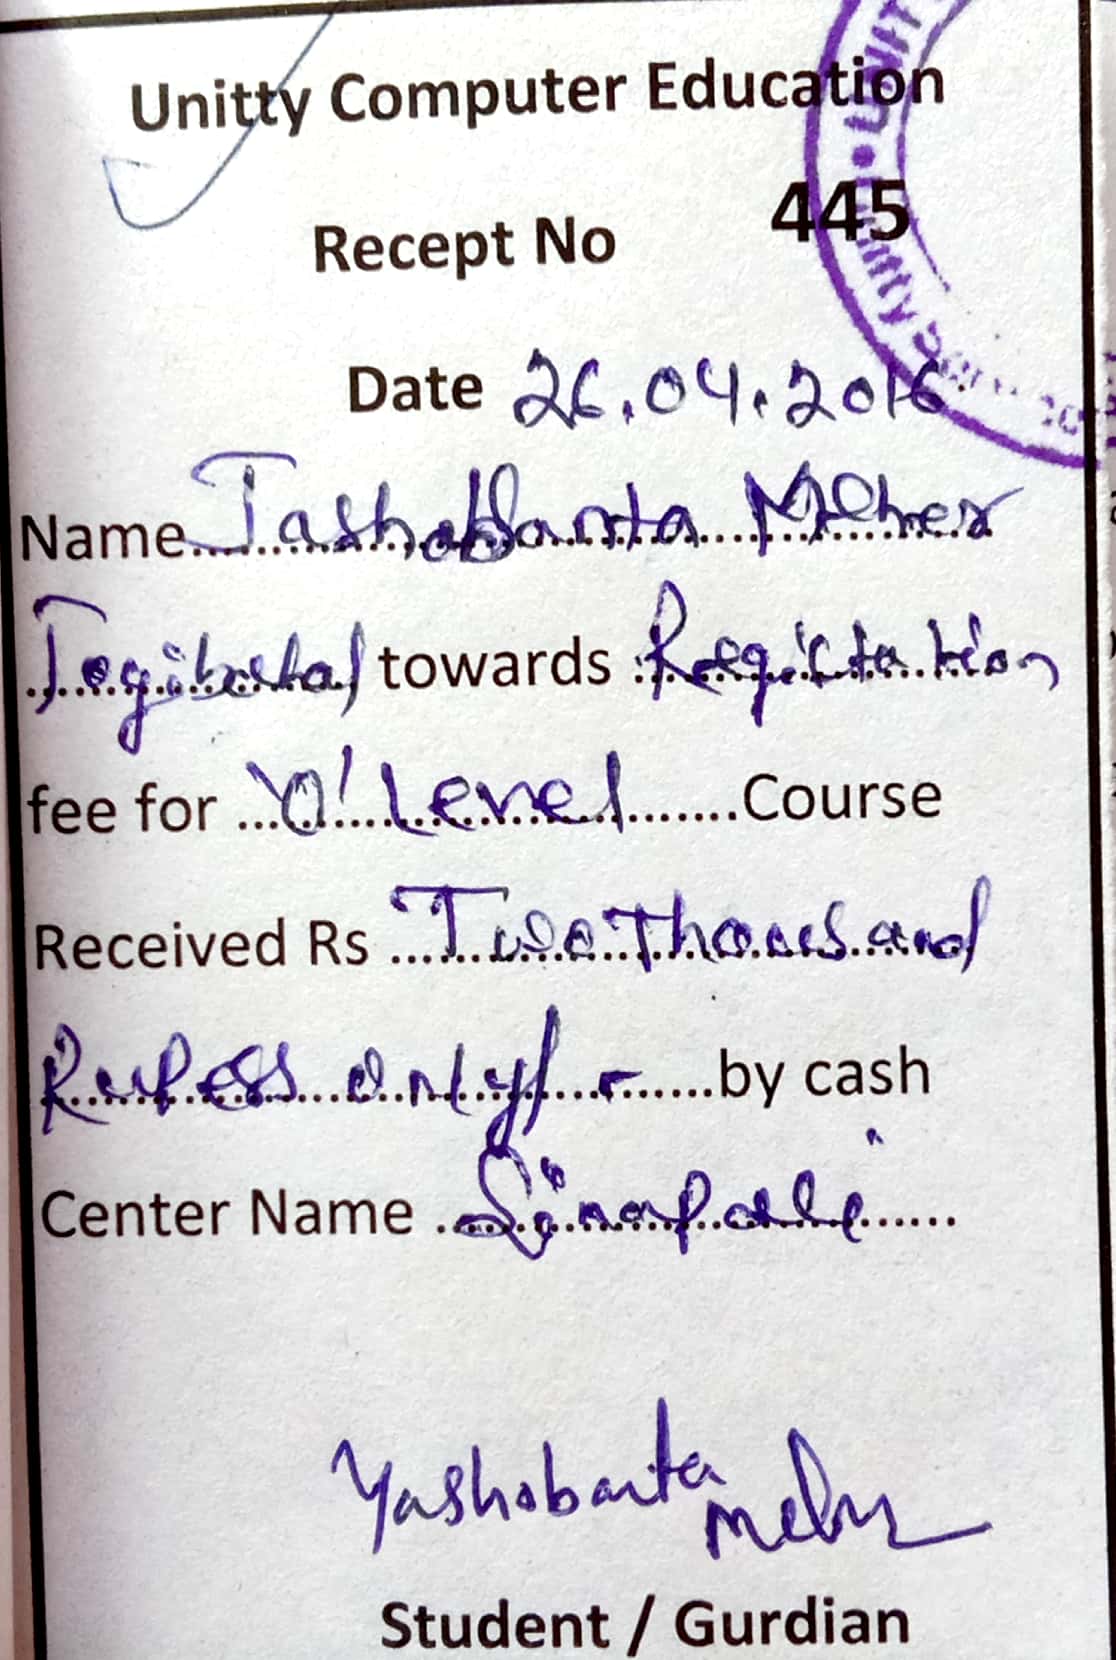 Unitty Computer Education
Recept No 445
Date 26.04.2016
Name Jashobanta Meher
Jogibatal towards Registation
fee for 'O' Level Course
Received Rs Two Thousand
Rupess only/- by cash
Center Name Sinapali
Yashobanta Meher
Student / Gurdian